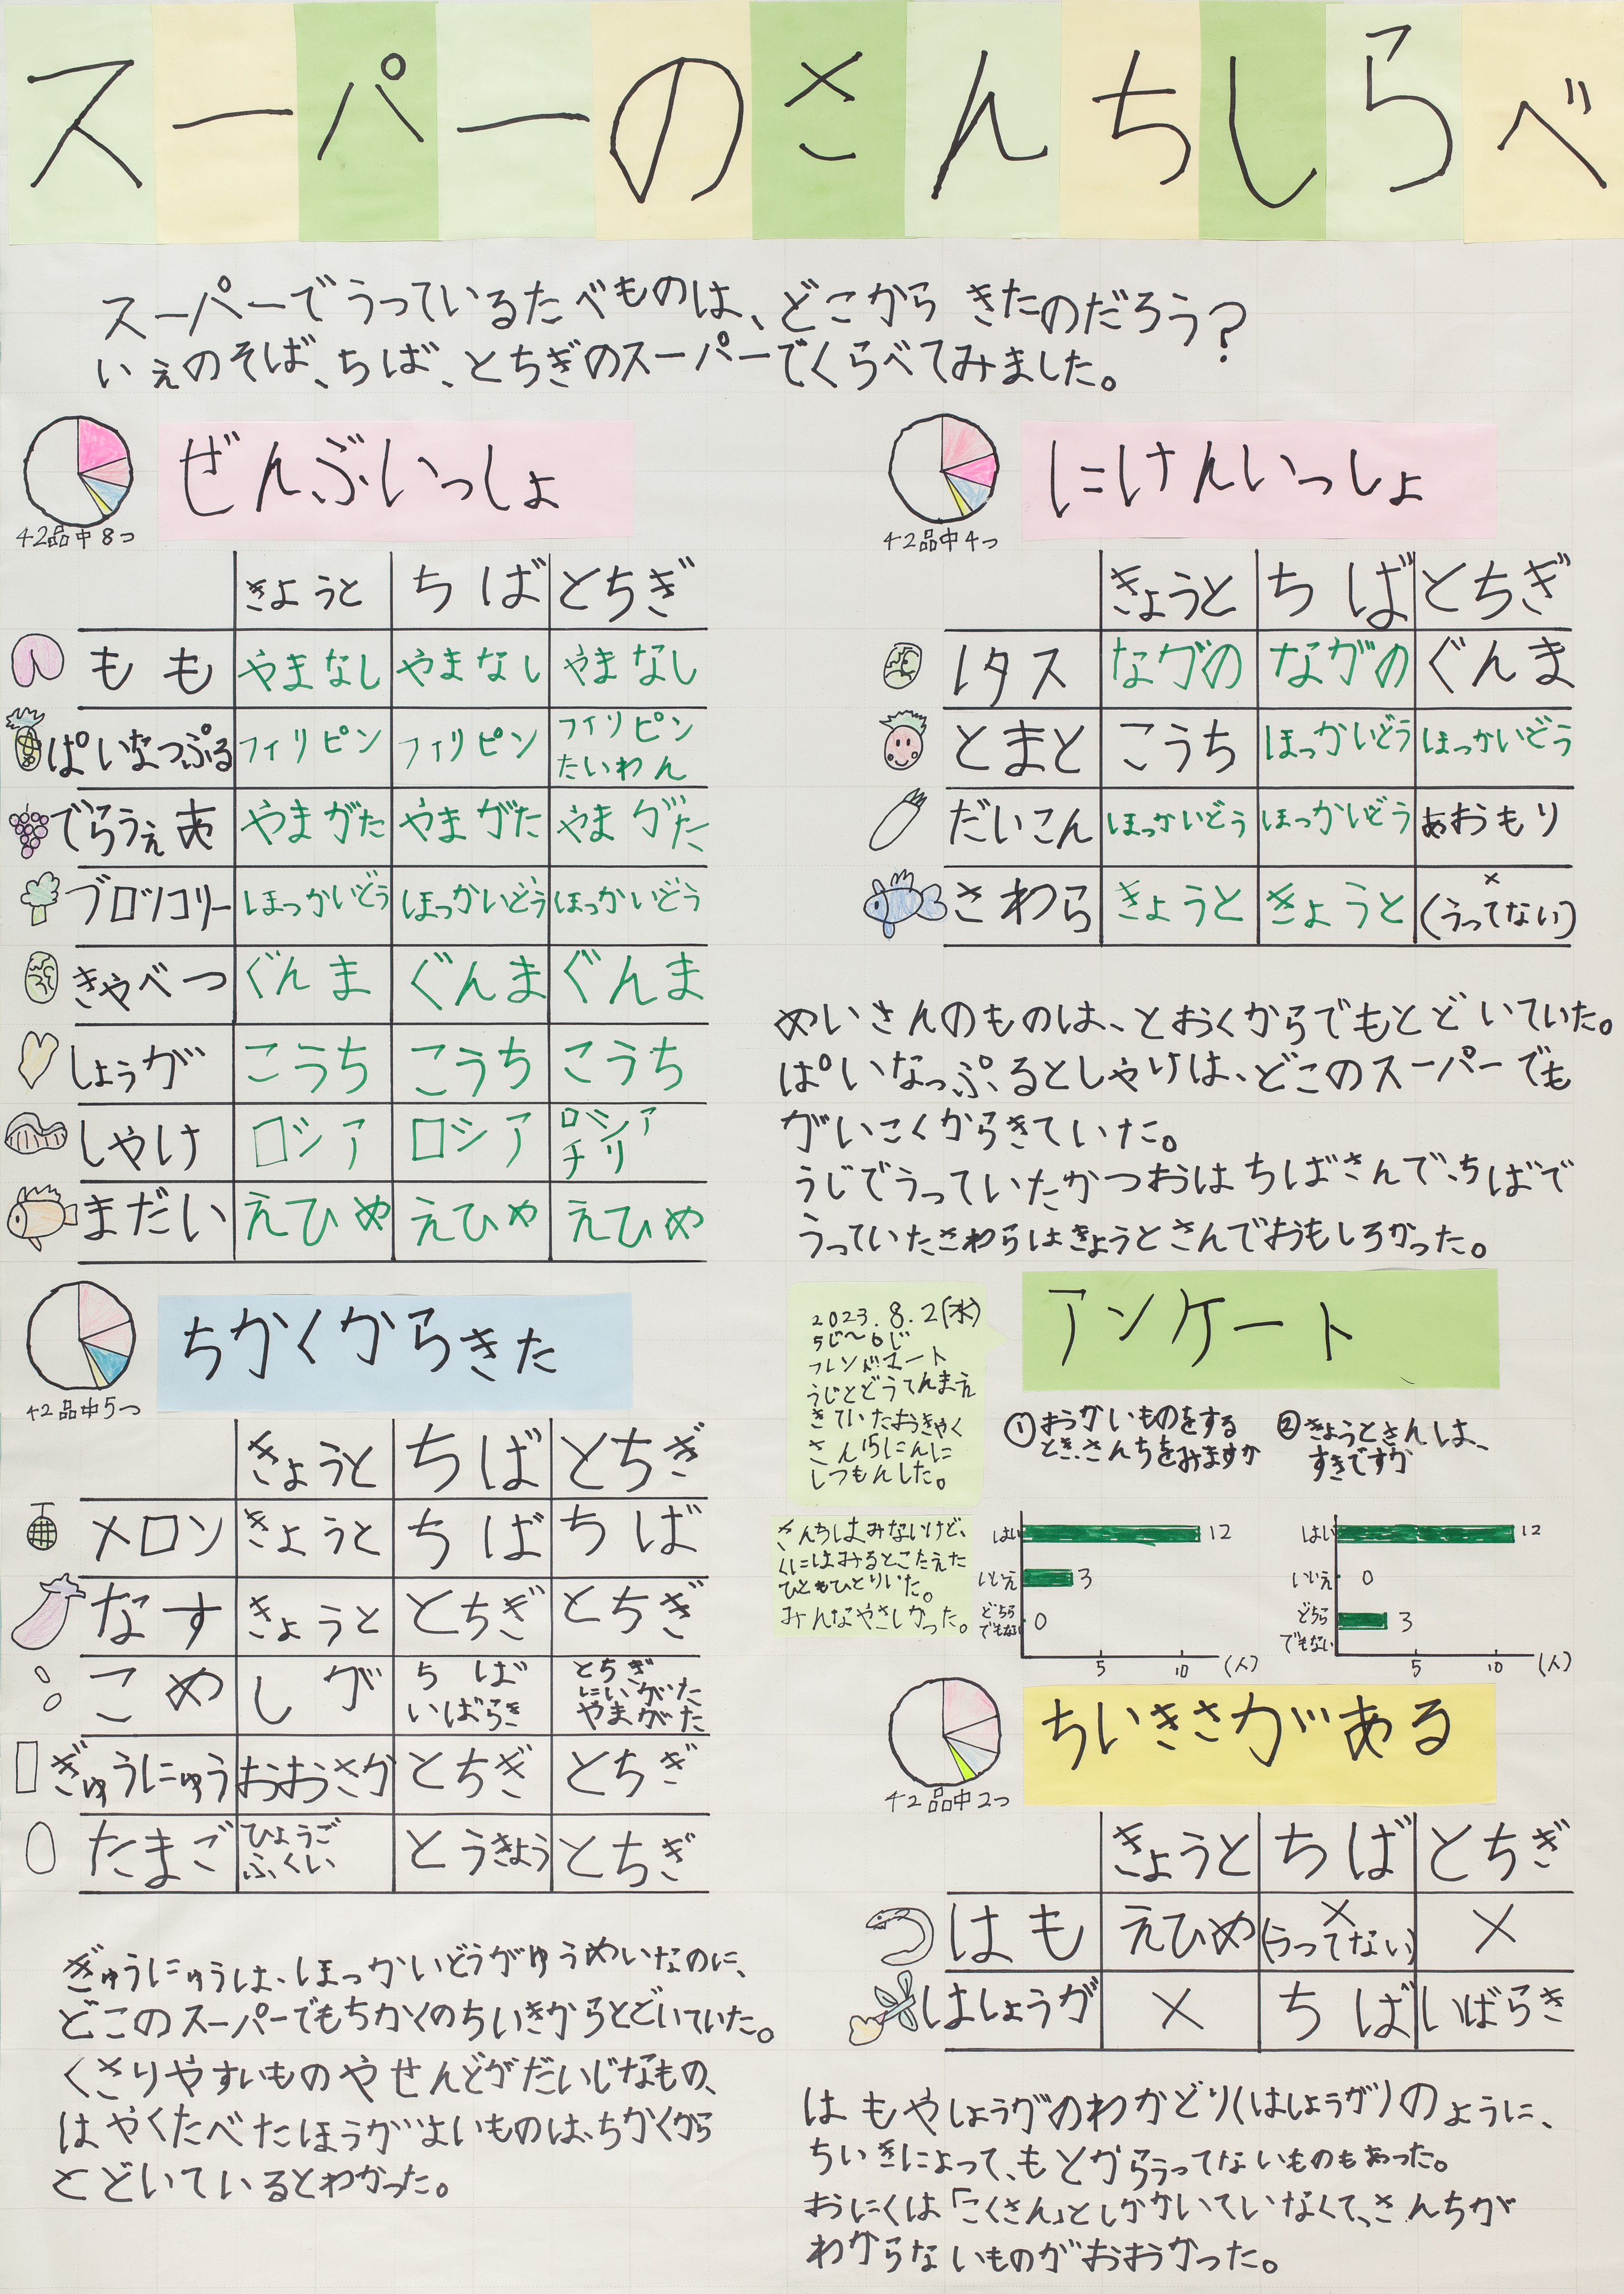 スーパーのさんちしらべ
スーパーでうっているたべものは、どこからきたのだろう？
いえのそば、ちば、とちぎのスーパーでくらべてみました。
ぜんぶいっしょ
42品中8つ
きょうと ちば とちぎ
もも やまなし やまなし やまなし
ぱいなっぷる フィリピン フィリピン フィリピン
たいわん
でらうぇあ やまがた やまがた やまがた
ブロッコリー ほっかいどう ほっかいどう ほっかいどう
きゃべつ ぐんま ぐんま ぐんま
しょうが こうち こうち こうち
しゃけ ロシア ロシア ロシア
チリ
まだい えひめ えひめ えひめ
ちかくからきた
42品中5つ
きょうと ちば とちぎ
メロン きょうと ちば ちば
なす きょうと とちぎ とちぎ
こめ しが ちば とちぎ
いばらき にいがた
やまがた
ぎゅうにゅう おおさか とちぎ とちぎ
たまご ひょうご とうきょう とちぎ
ふくい
ぎゅうにゅうは、ほっかいどうがゆうめいなのに、
どこのスーパーでもちかくのちいきからとどいていた。
くさりやすいものやせんどがだいじなもの、
はやくたべたほうがよいものは、ちかくから
とどいているとわかった。
にけんいっしょ
42品中4つ
きょうと ちば とちぎ
レタス ながの ながの ぐんま
とまと こうち ほっかいどう ほっかいどう
だいこん ほっかいどう ほっかいどう あおもり
さわら きょうと きょうと ×
(うってない)
めいさんのものは、とおくからでもとどいていた。
ぱいなっぷるとしゃけは、どこのスーパーでも
がいこくからきていた。
うじでうっていたかつおはちばさんで、ちばで
うっていたさわらはきょうとさんでおもしろかった。
アンケート
2023.8.2(水)
5じ〜6じ
フレンドマート
うじとどうてんまえ
きていたおきゃく
さん15にんに
しつもんした。
さんちはみないけど、
くにはみるとこたえた
ひともひとりいた。
みんなやさしかった。
①おかいものをする
とき、さんちをみますか
はい 12
いいえ 3
どちら
でもない 0
5 10 (人)
②きょうとさんは、
すきですか
はい 12
いいえ 0
どちら
でもない 3
5 10 (人)
ちいきさがある
42品中2つ
きょうと ちば とちぎ
はも えひめ × ×
(うってない)
はしょうが × ちば いばらき
はもやしょうがのわかどり(はしょうが)のように、
ちいきによって、もとからうってないものもあった。
おにくは「こくさん」としかかいていなくて、さんちが
わからないものがおおかった。